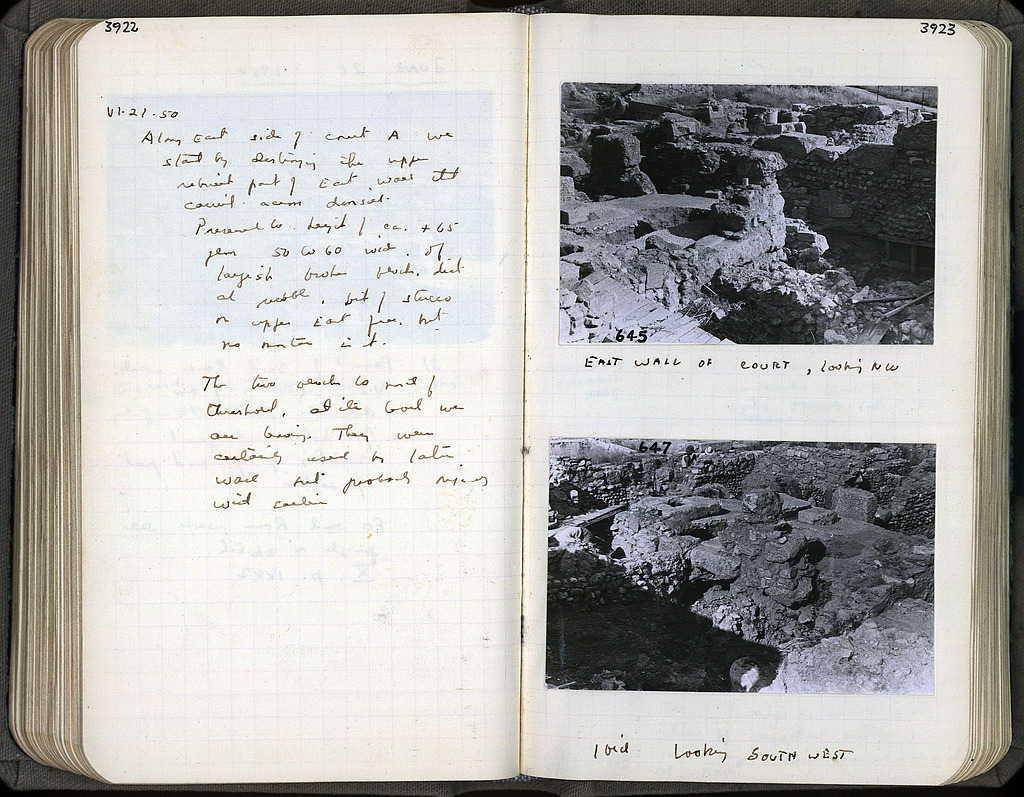 3922
VI·21·50
Along East side of court A we
start by destroying the upper
part of East wall that
across
Preserved to height of ca. + 65
50 to 60 wide, of
largish broken
rubble, bit of stucco
on upper East face, but
no mortar in it.
The two to of
threshold, at its level we
are leaving. They were
certainly used by later
wall but probably
with earlier
3923
645
EAST WALL OF COURT, looking NW
647
Ibid looking SOUTH WEST